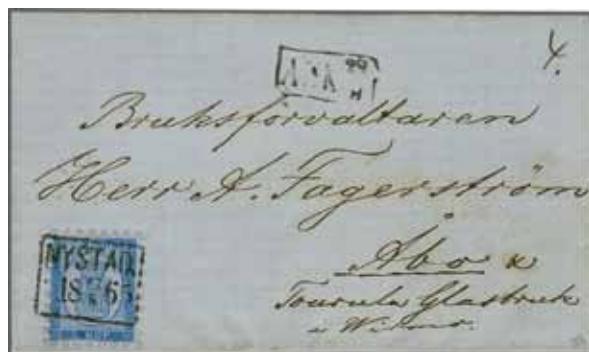 4.
Bruksförvaltaren
Herr A. Fagerström
Åbo
Tourula Glasbruk
NYSTAD
18 65